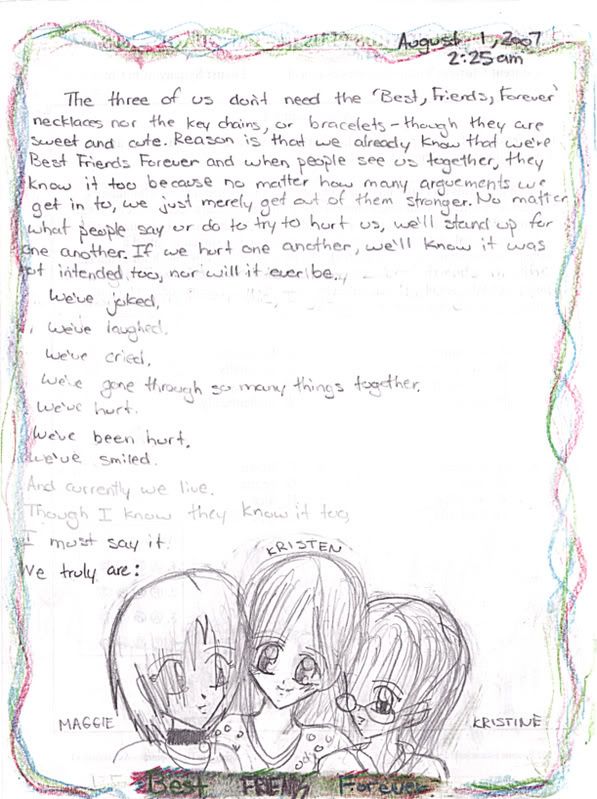 August 1, 2007
2:25 am
The three of us don't need the 'Best, Friends, Forever'
necklaces nor the key chains, or bracelets - though they are
sweet and cute. Reason is that we already know that we're
Best Friends Forever and when people see us together, they
know it too because no matter how many arguements we
get in to, we just merely get out of them stronger. No matter
what people say or do to try to hurt us, we'll stand up for
one another. If we hurt one another, we'll know it was
not intended too, nor will it ever be...
We've joked,
We've laughed.
We've cried,
We've gone through so many things together.
We've hurt.
We've been hurt.
We've smiled.
And currently we live.
Though I know they know it too,
I must say it.
We truly are:
KRISTEN
MAGGIE
KRISTINE
Best FRIENDS Forever